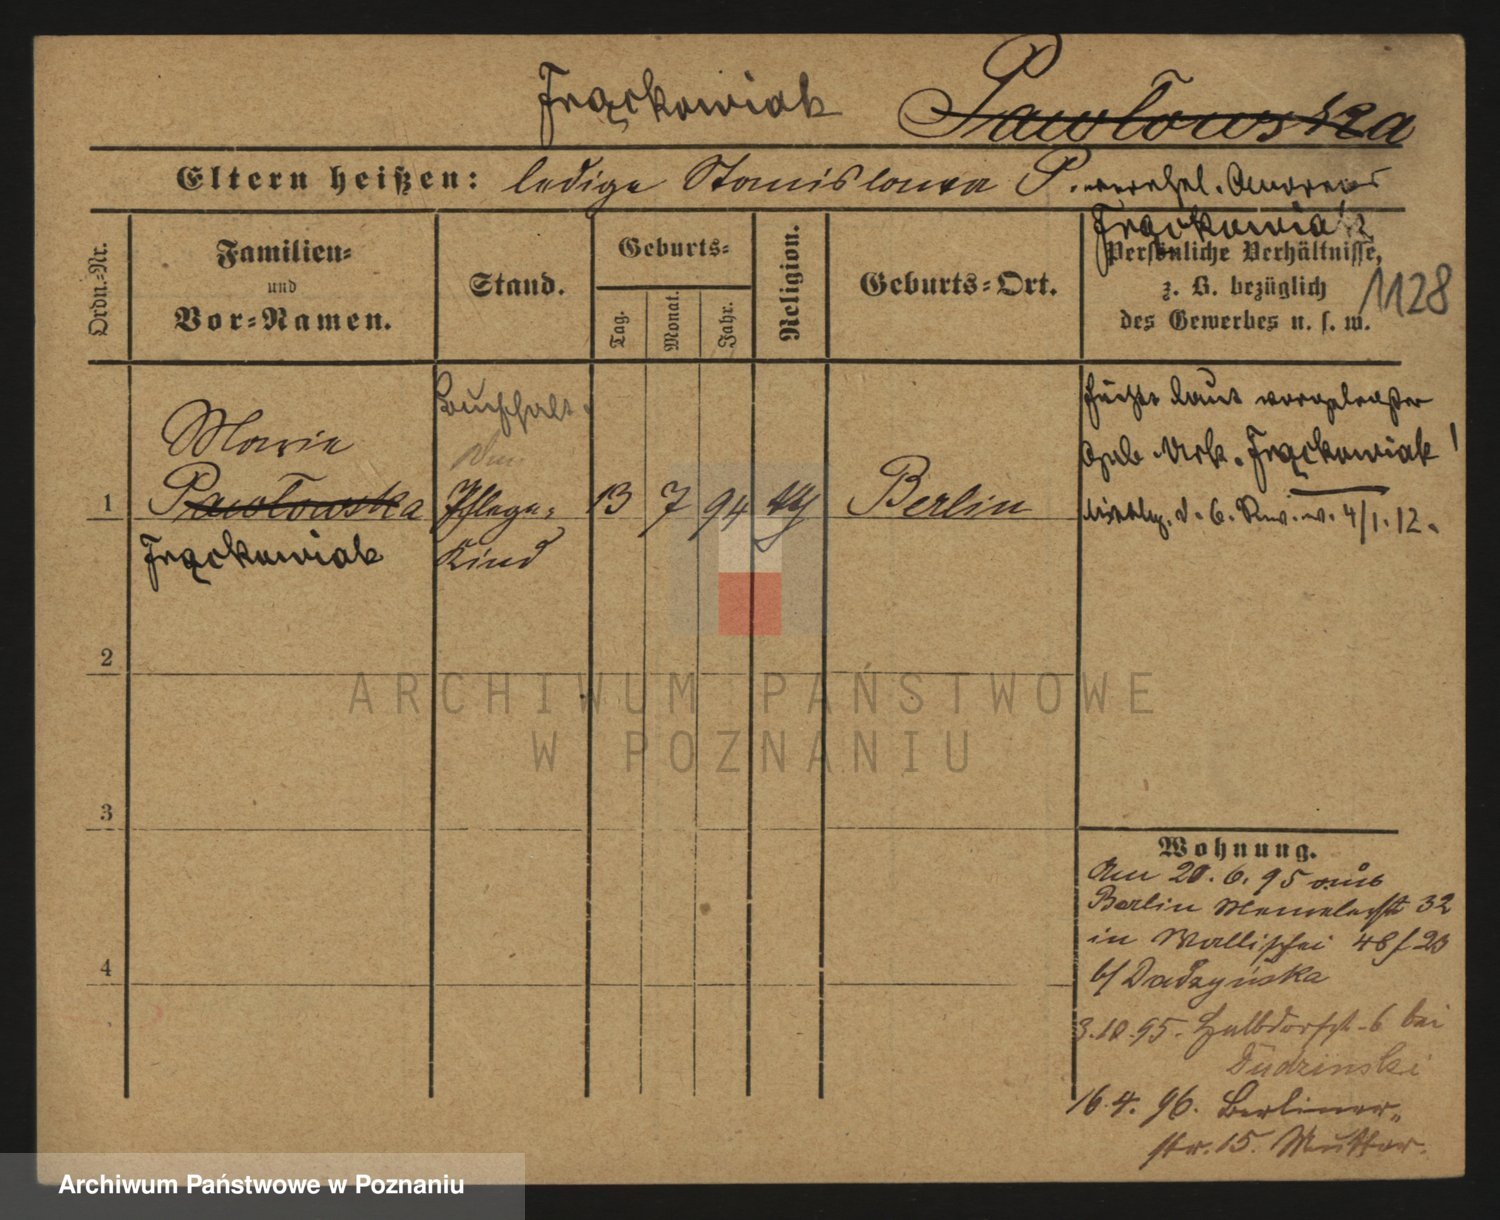 Frąckowiak Pawłowska
Eltern heißen: ledige Stanislawa P. verehel. Andreas
Frąckowiak
Ordn.-Nr.
Familien-
und
Vor-Namen.
Stand.
Geburts-
Tag.
Monat.
Jahr.
Religion.
Geburts-Ort.
Persönliche Verhältnisse,
z. B. bezüglich
des Gewerbes u. s. w.
1128
Marie
1 Pawłowska
Frąckowiak
Buchhalt.
Pflege-
Kind
13 7 94 Berlin
laut vorgelegter
Geb. Urk. Frąckowiak!
d. 6. Rev. v. 4/1. 12.
2
3
4
Wohnung.
Am 20. 6. 95 aus
Berlin Memelerstr 32
in Wallischei 48/ 23
b/ Dadzyńska
3.10.95. Halbdorfst. 6 bei
Dudzinski
16. 4. 96. Berliner-
str. 15. Mutter.
ARCHIWUM PAŃSTWOWE
W POZNANIU
Archiwum Państwowe w Poznaniu